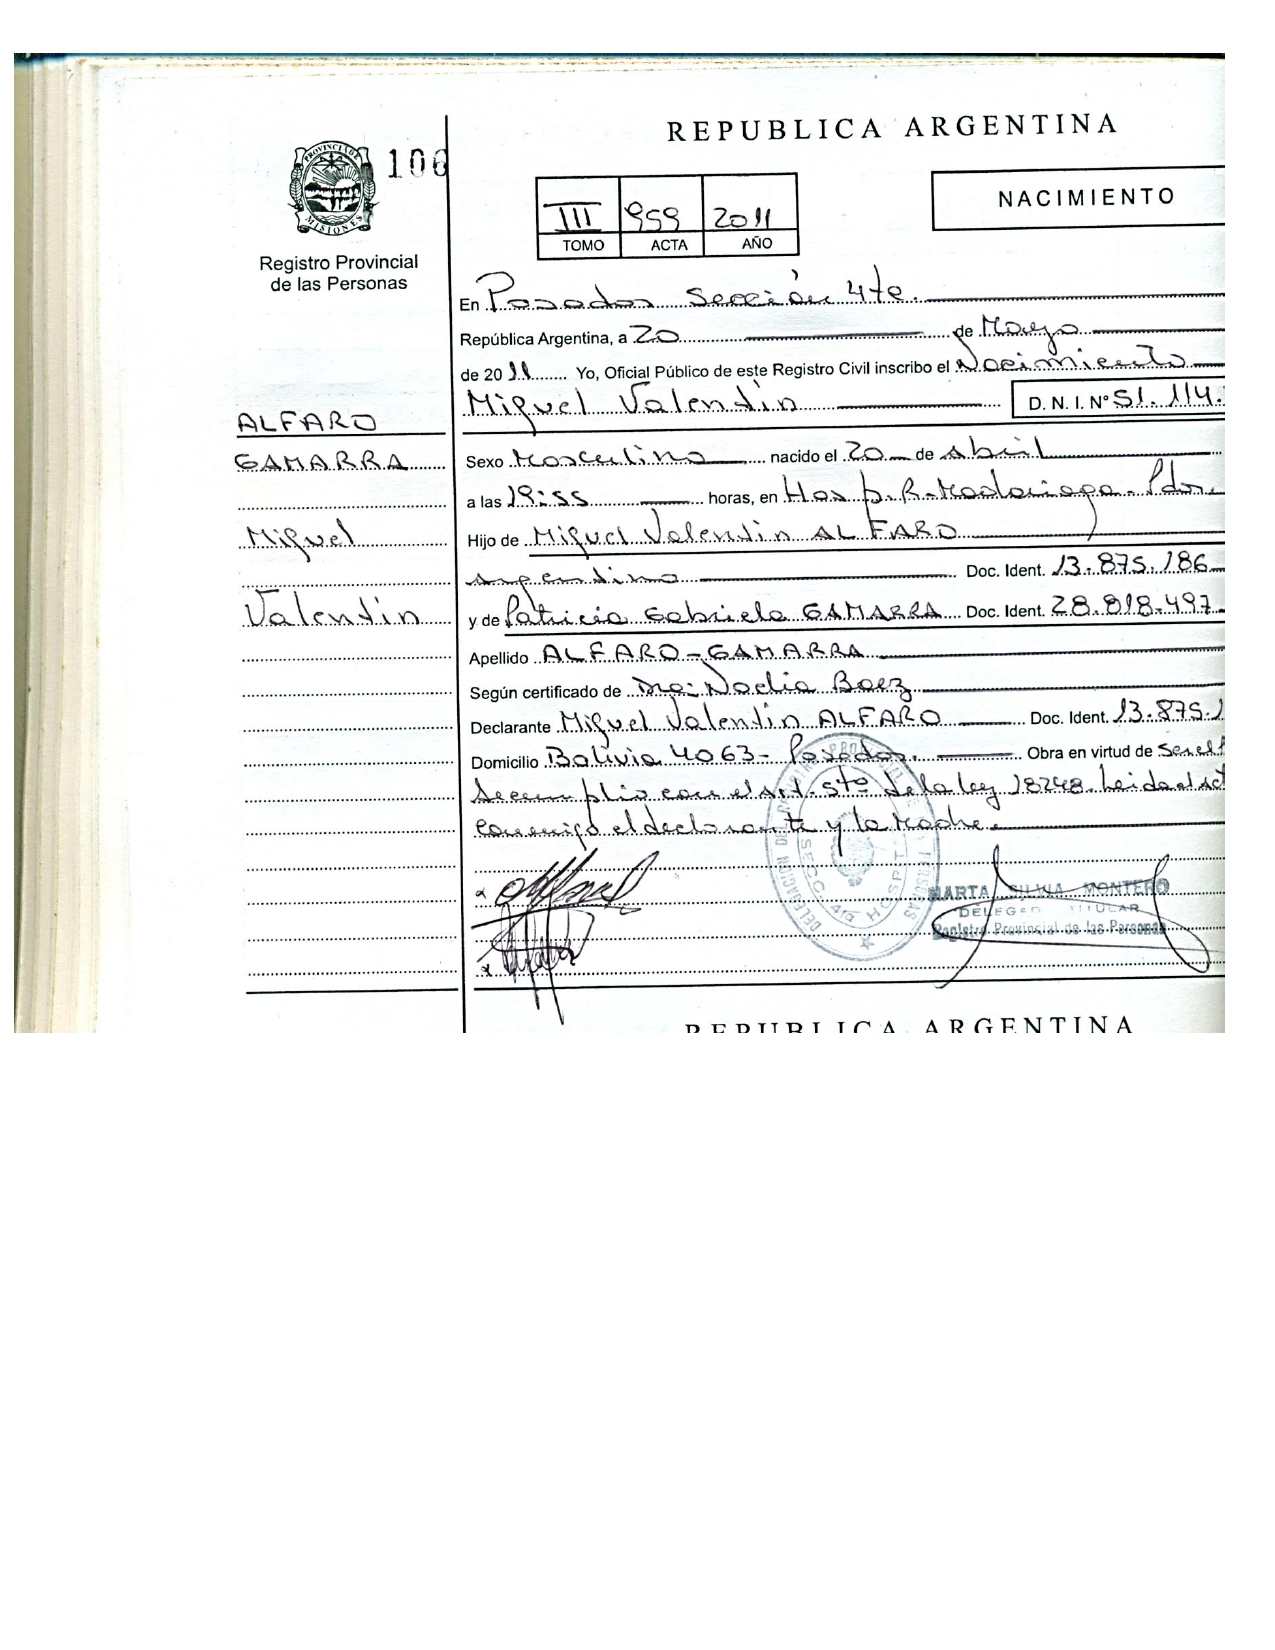 REPUBLICA ARGENTINA
106
PROVINCIA DE
MISIONES
Registro Provincial
de las Personas
III 959 2011
TOMO ACTA AÑO
NACIMIENTO
En Posadas Sección 4ta.
República Argentina, a 20 de Mayo
de 2011 Yo, Oficial Público de este Registro Civil inscribo el Nacimiento
Miguel Valentín D. N. I. N° 51.114.
ALFARO
GAMARRA
Miguel
Valentín
Sexo Masculino nacido el 20 de Abril
a las 19:55 horas, en Hosp. R. Madariaga. Pdas.
Hijo de Miguel Valentín ALFARO
Argentino Doc. Ident. 13.875.186
y de Patricia Gabriela GAMARRA Doc. Ident. 28.818.497
Apellido ALFARO-GAMARRA
Según certificado de Dra: Noelia Baez
Declarante Miguel Valentín ALFARO Doc. Ident. 13.875.1
Domicilio Bolivia 4063- Posadas. Obra en virtud de Ser el
Se cumplio con el Art. 5to de la ley 18248. Leida el Act
conmigo el declarante y la Madre.
MARTA SILVIA MONTERO
DELEGADA TITULAR
Registro Provincial de las Personas
SECC. 4ta HOSPITAL
REPUBLICA ARGENTINA